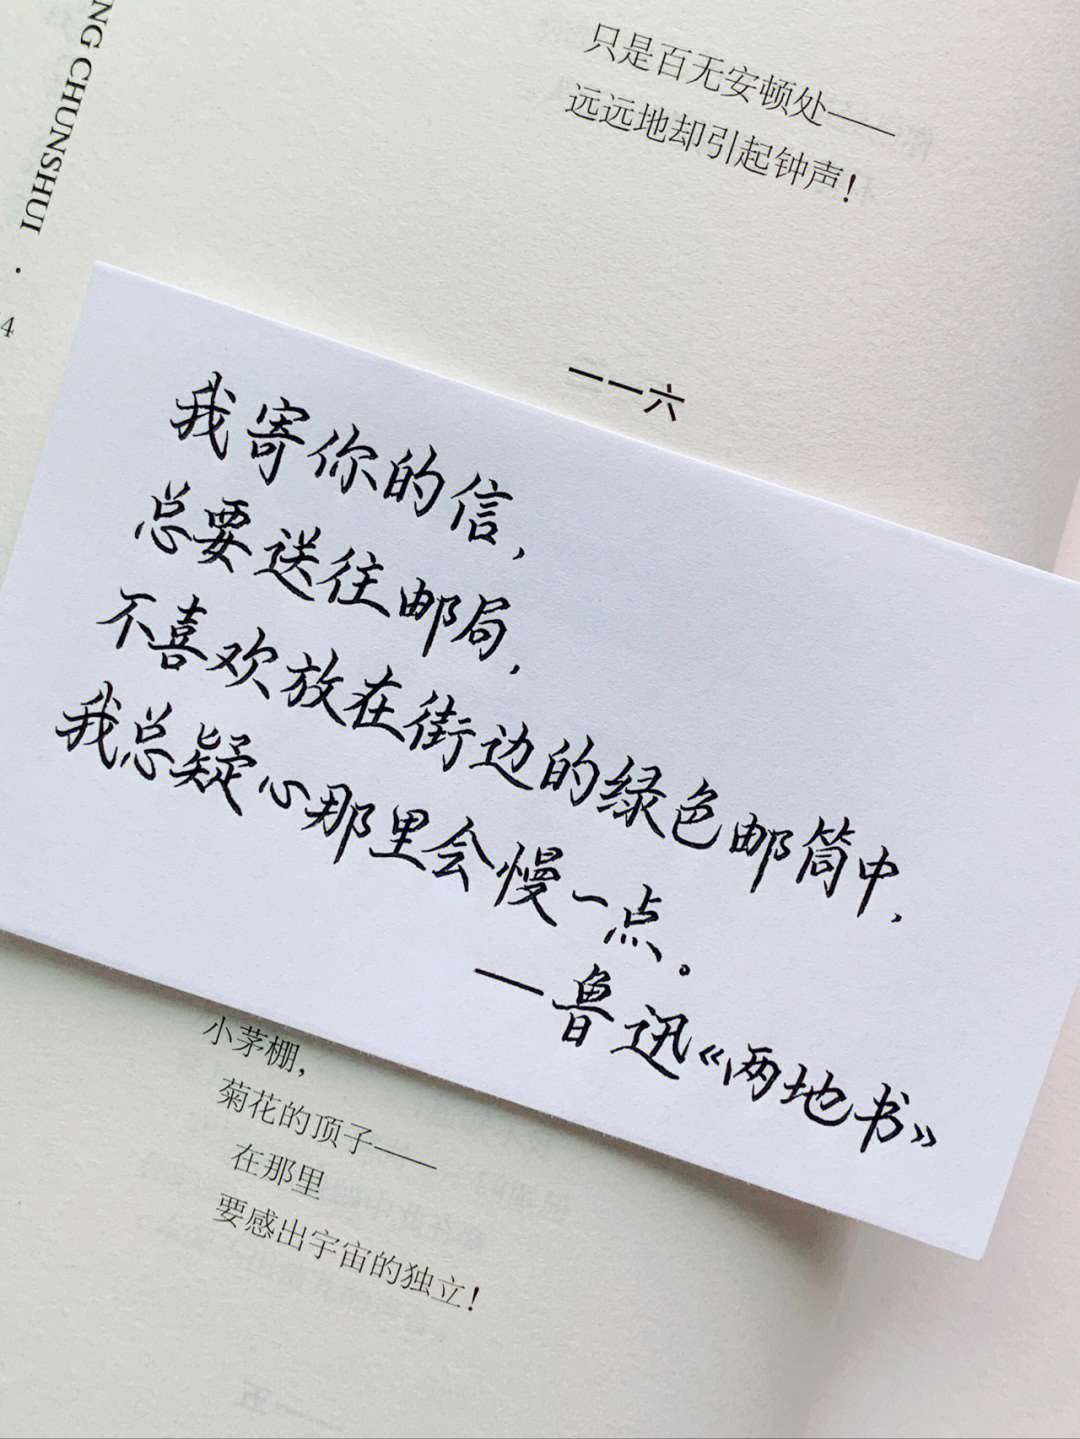 NG CHUNSHUI ·
4
只是百无安顿处——
远远地却引起钟声！
一一六
我寄你的信，
总要送往邮局，
不喜欢放在街边的绿色邮筒中，
我总疑心那里会慢一点。
—鲁迅《两地书》
小茅棚，
菊花的顶子——
在那里
要感出宇宙的独立！